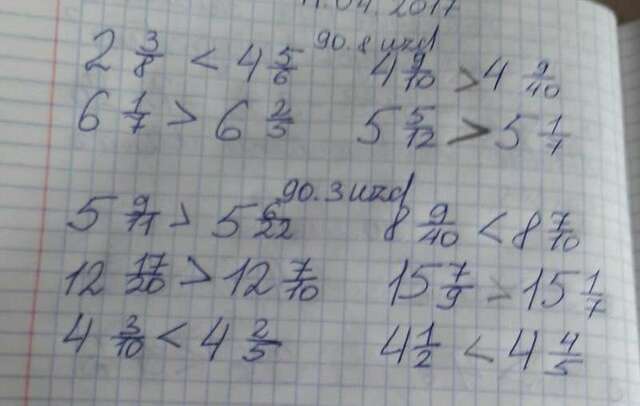 11.04.2017
90.8 uzd
2 3/8 < 4 5/6 4 9/10 > 4 9/40
6 1/7 > 6 2/5 5 5/12 > 5 1/7
90.3 uzd
5 9/11 > 5 6/22 8 9/40 < 8 7/10
12 17/20 > 12 7/10 15 7/9 > 15 1/7
4 3/10 < 4 2/5 4 1/2 < 4 4/5